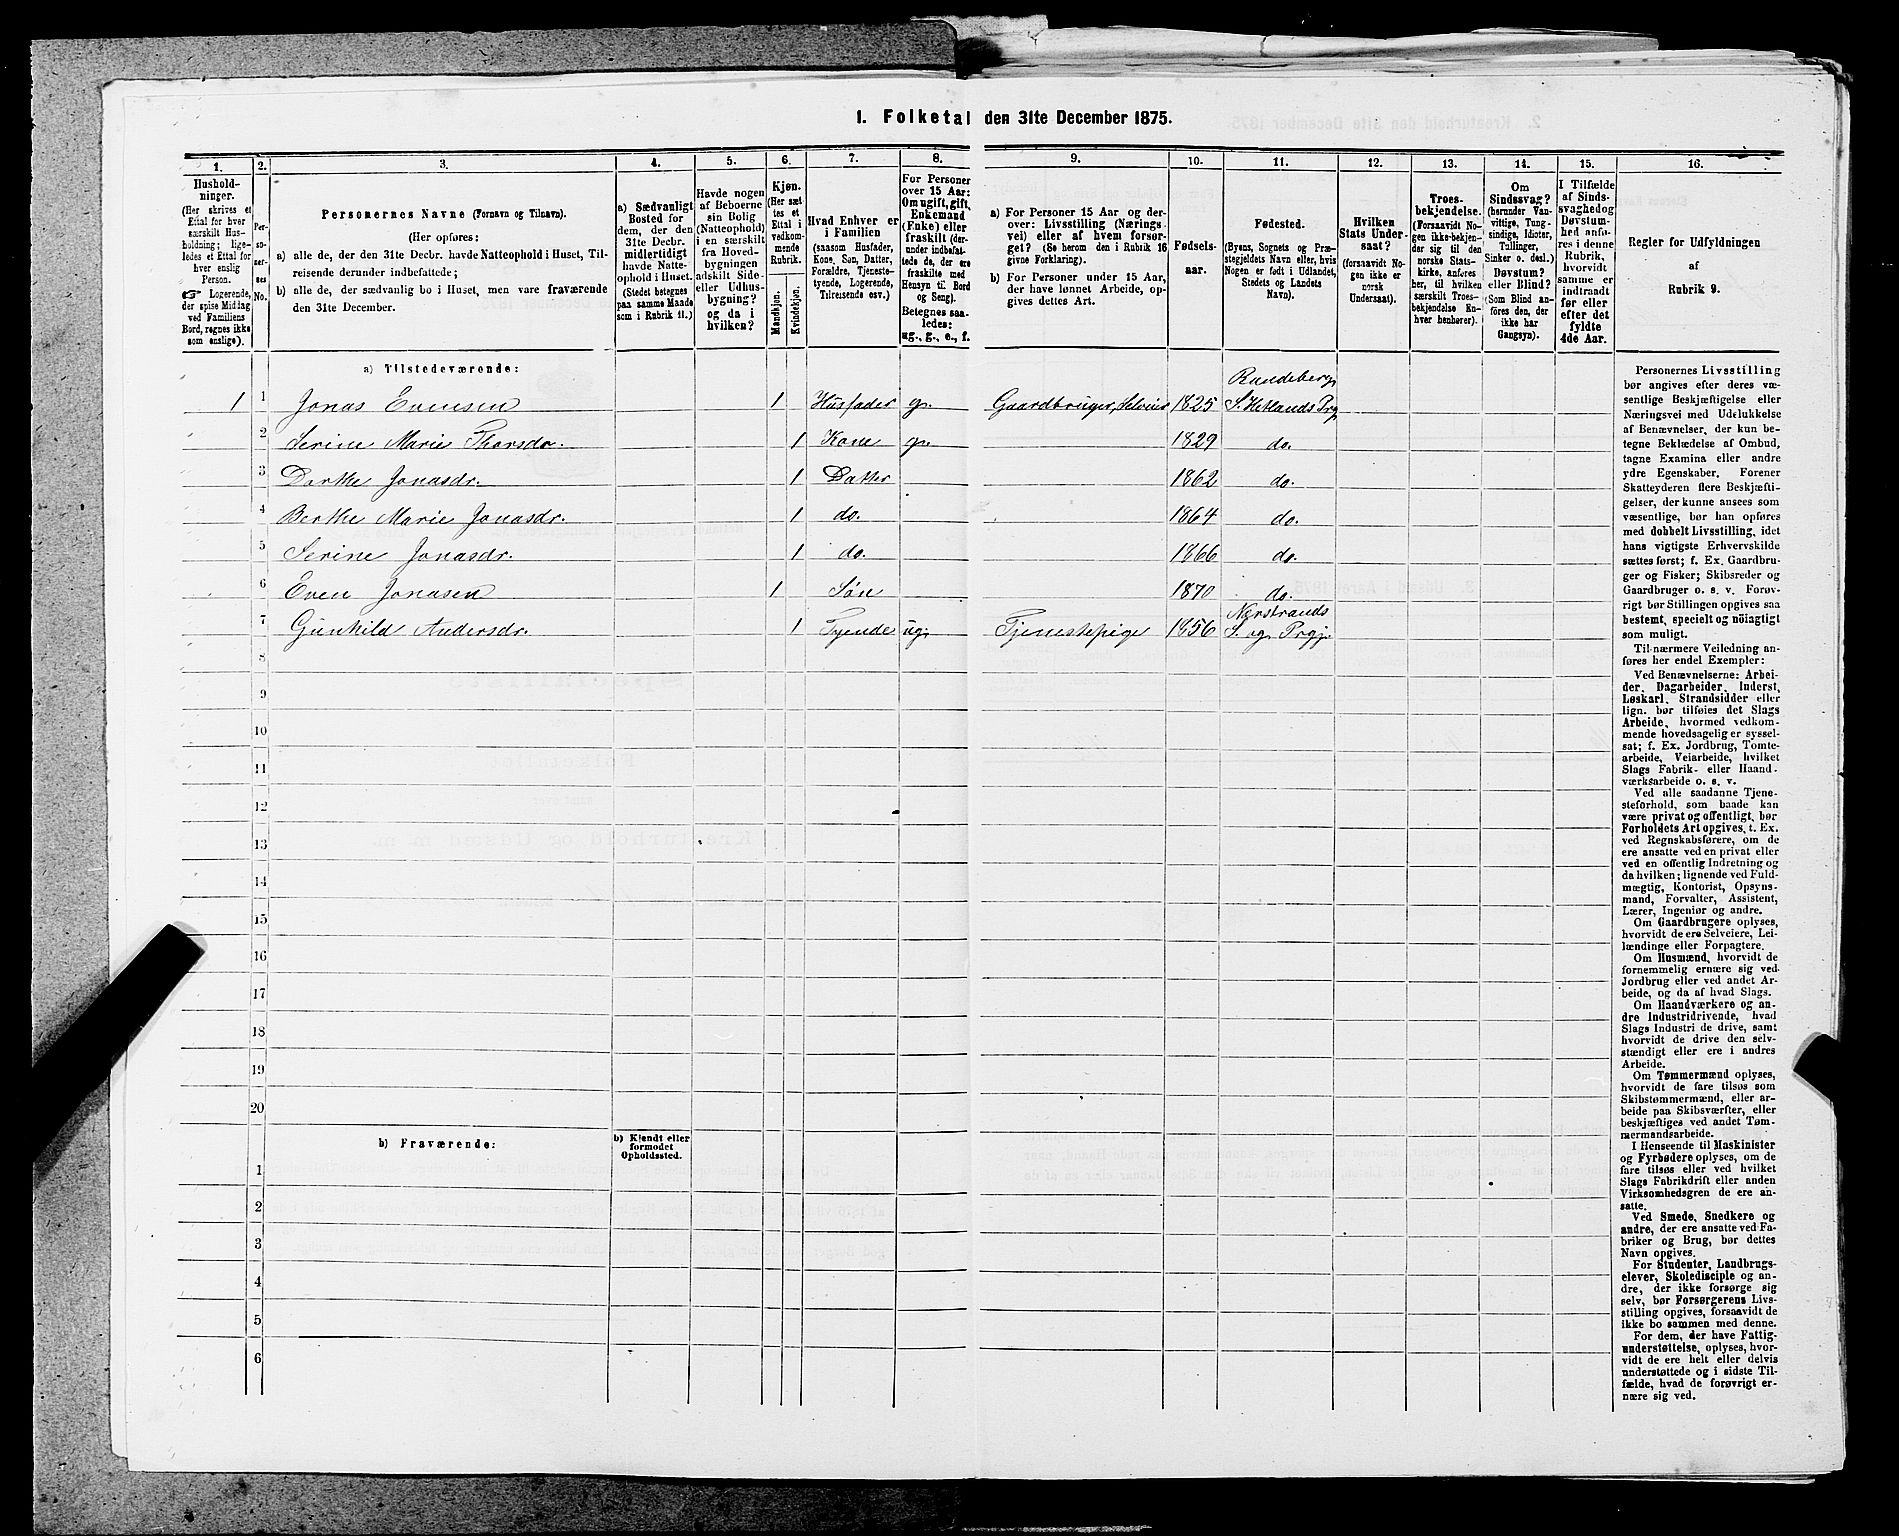 1. Folketal den 31te December 1875.
1. 2. 3. 4. 5. 6. 7. 8. 9. 10. 11. 12. 13. 14. 15. 16.
Hushold-
ninger.
(Her skrives et
Ettal for hver
særskilt Hus-
holdning; lige-
ledes et Ettal for
hver enslig
Person.
☞ Logerende,
der spise Middag
ved Familiens
Bord, regnes ikke
som enslige).
Per-
so-
ner-
nes
No.
Personernes Navne (Fornavn og Tilnavn).
(Her opføres:
a) alle de, der den 31te Decbr. havde Natteophold i Huset, Til-
reisende derunder indbefattede;
b) alle de, der sædvanlig bo i Huset, men vare fraværende
den 31te December.
a) Sædvanligt
Bosted for
dem, der den
31te Decbr.
midlertidigt
havde Natte-
ophold i Huset.
(Stedet betegnes
paa samme Maade
som i Rubrik 11.)
Havde nogen
af Beboerne
sin Bolig
(Natteophold)
i en særskilt
fra Hoved-
bygningen
adskilt Side-
eller Udhus-
bygning?
og da i
hvilken?
Kjøn.
(Her sæt-
tes et
Ettal i
vedkom-
mende
Rubrik.
Mandkjøn.
Kvindekjøn.
Hvad Enhver er
i Familien
(saasom Husfader,
Kone, Søn, Datter,
Forældre, Tjeneste-
tyende, Logerende,
Tilreisende osv.)
For Personer
over 15 Aar:
Om ugift, gift,
Enkemand
(Enke) eller
fraskilt (der-
under indbefat-
tede de, der ere
fraskilte med
Hensyn til Bord
og Seng).
Betegnes saa-
ledes:
ug., g., e., f.
a) For Personer 15 Aar og der-
over: Livsstilling (Nærings-
vei) eller af hvem forsør-
get? (Se herom den i Rubrik 16
givne Forklaring).
b) For Personer under 15 Aar,
der have lønnet Arbeide, op-
gives dettes Art.
Fødsels-
aar.
Fødested.
(Byens, Sognets og Præ-
stegjeldets Navn eller, hvis
Nogen er født i Udlandet,
Stedets og Landets
Navn).
Hvilken
Stats Under-
saat?
(forsaavidt No-
gen ikke er
norsk
Undersaat).
Troes-
bekjendelse.
(Forsaavidt No-
gen ikke bekjen-
der sig til den
norske Stats-
kirke, anføres
her, til hvilken
særskilt Troes-
bekjendelse En-
hver henhører).
Om
Sindssvag?
(herunder Van-
vittige, Tung-
sindige, Idioter,
Tullinger,
Sinker o. desl.)
Døvstum?
eller Blind?
(Som Blind an-
føres den, der
ikke har
Gangsyn).
I Tilfælde
af Sinds-
svaghed og
Døvstum-
hed anfø-
res i denne
Rubrik,
hvorvidt
samme er
indtraadt
før eller
efter det
fyldte
4de Aar.
Regler for Udfyldningen
af
Rubrik 9.
a) Tilstedeværende:
Rundeberg
1 1 Jonas Evensen 1 Husfader g. Gaardbruger, Selveier 1825 S. Hetlands Prg
2 Serine Marie Thorsdr. 1 Kone g. 1829 do.
3 Dorthe Jonasdr. 1 Datter 1862 do.
4 Berthe Marie Jonasdr. 1 do. 1864 do.
5 Serine Jonasdr. 1 do. 1866 do.
6 Even Jonasen 1 Søn 1870 do.
Nerstrands
7 Gunhild Andersdr. 1 Tyende ug. Tjenestepige 1856 S. og Prgj.
8
9
10
11
12
13
14
15
16
17
18
19
20
b) Fraværende:
b) Kjendt eller
formodet
Opholdssted.
1
2
3
4
5
6
Personernes Livsstilling
bør angives efter deres væ-
sentlige Beskjæftigelse eller
Næringsvei med Udelukkelse
af Benævnelser, der kun be-
tegne Beklædelse af Ombud,
tagne Examina eller andre
ydre Egenskaber. Forener
Skatteyderen flere Beskjæfti-
gelser, der kunne ansees som
væsentlige, bør han opføres
med dobbelt Livsstilling, idet
hans vigtigste Erhvervskilde
sættes først; f. Ex. Gaardbru-
ger og Fisker; Skibsreder og
Gaardbruger o. s. v. Forøv-
rigt bør Stillingen opgives saa
bestemt, specielt og nöiagtigt
som muligt.
Til nærmere Veiledning an-
føres her endel Exempler:
Ved Benævnelserne: Arbei-
der, Dagarbeider, Inderst,
Løskarl, Strandsidder eller
lign. bør tilføies det Slags
Arbeide, hvormed vedkom-
mende hovedsagelig er syssel-
sat; f. Ex. Jordbrug, Tomte-
arbeide, Veiarbeide, hvilket
Slags Fabrik- eller Haand-
værksarbeide o. s. v.
Ved alle saadanne Tjene-
steforhold, som baade kan
være privat og offentligt, bør
Forholdets Art opgives, t. Ex.
ved Regnskabsførere, om de
ere ansatte ved en privat eller
ved en offentlig Indretning og
da hvilken; lignende ved Fuld-
mægtig, Kontorist, Opsyns-
mand, Forvalter, Assistent,
Lærer, Ingeniør og andre.
Om Gaardbrugere oplyses,
hvorvidt de ere Selveiere, Lei-
lændinge eller Forpagtere.
Om Husmænd, hvorvidt de
fornemmelig ernære sig ved
Jordbrug eller ved andet Ar-
beide, og da af hvad Slags.
Om Haandværkere og an-
dre Industridrivende, hvad
Slags Industri de drive, samt
hvorvidt de drive den selv-
stændigt eller ere i andres
Arbeide.
Om Tømmermænd oplyses,
hvorvidt de fare tilsøs som
Skibstømmermænd, eller ar-
beide paa Skibsværfter, eller
beskjæftiges ved andet Tøm-
mermandsarbeide.
I Henseende til Maskinister
og Fyrbødere oplyses, om de
fare tilsøs eller ved hvilket
Slags Fabrikdrift eller anden
Virksomhedsgren de ere an-
satte.
Ved Smede, Snedkere og
andre, der ere ansatte ved Fa-
briker og Brug, bør dettes
Navn opgives.
For Studenter, Landbrugs-
elever, Skoledisciple og an-
dre, der ikke forsørge sig
selv, bør Forsørgerens Livs-
stilling opgives, forsaavidt de
ikke bo sammen med denne.
For dem, der have Fattig-
understøttelse, oplyses, hvor-
vidt de ere helt eller delvis
understøttede og i sidste Til-
fælde, hvad de forøvrigt er-
nære sig ved.